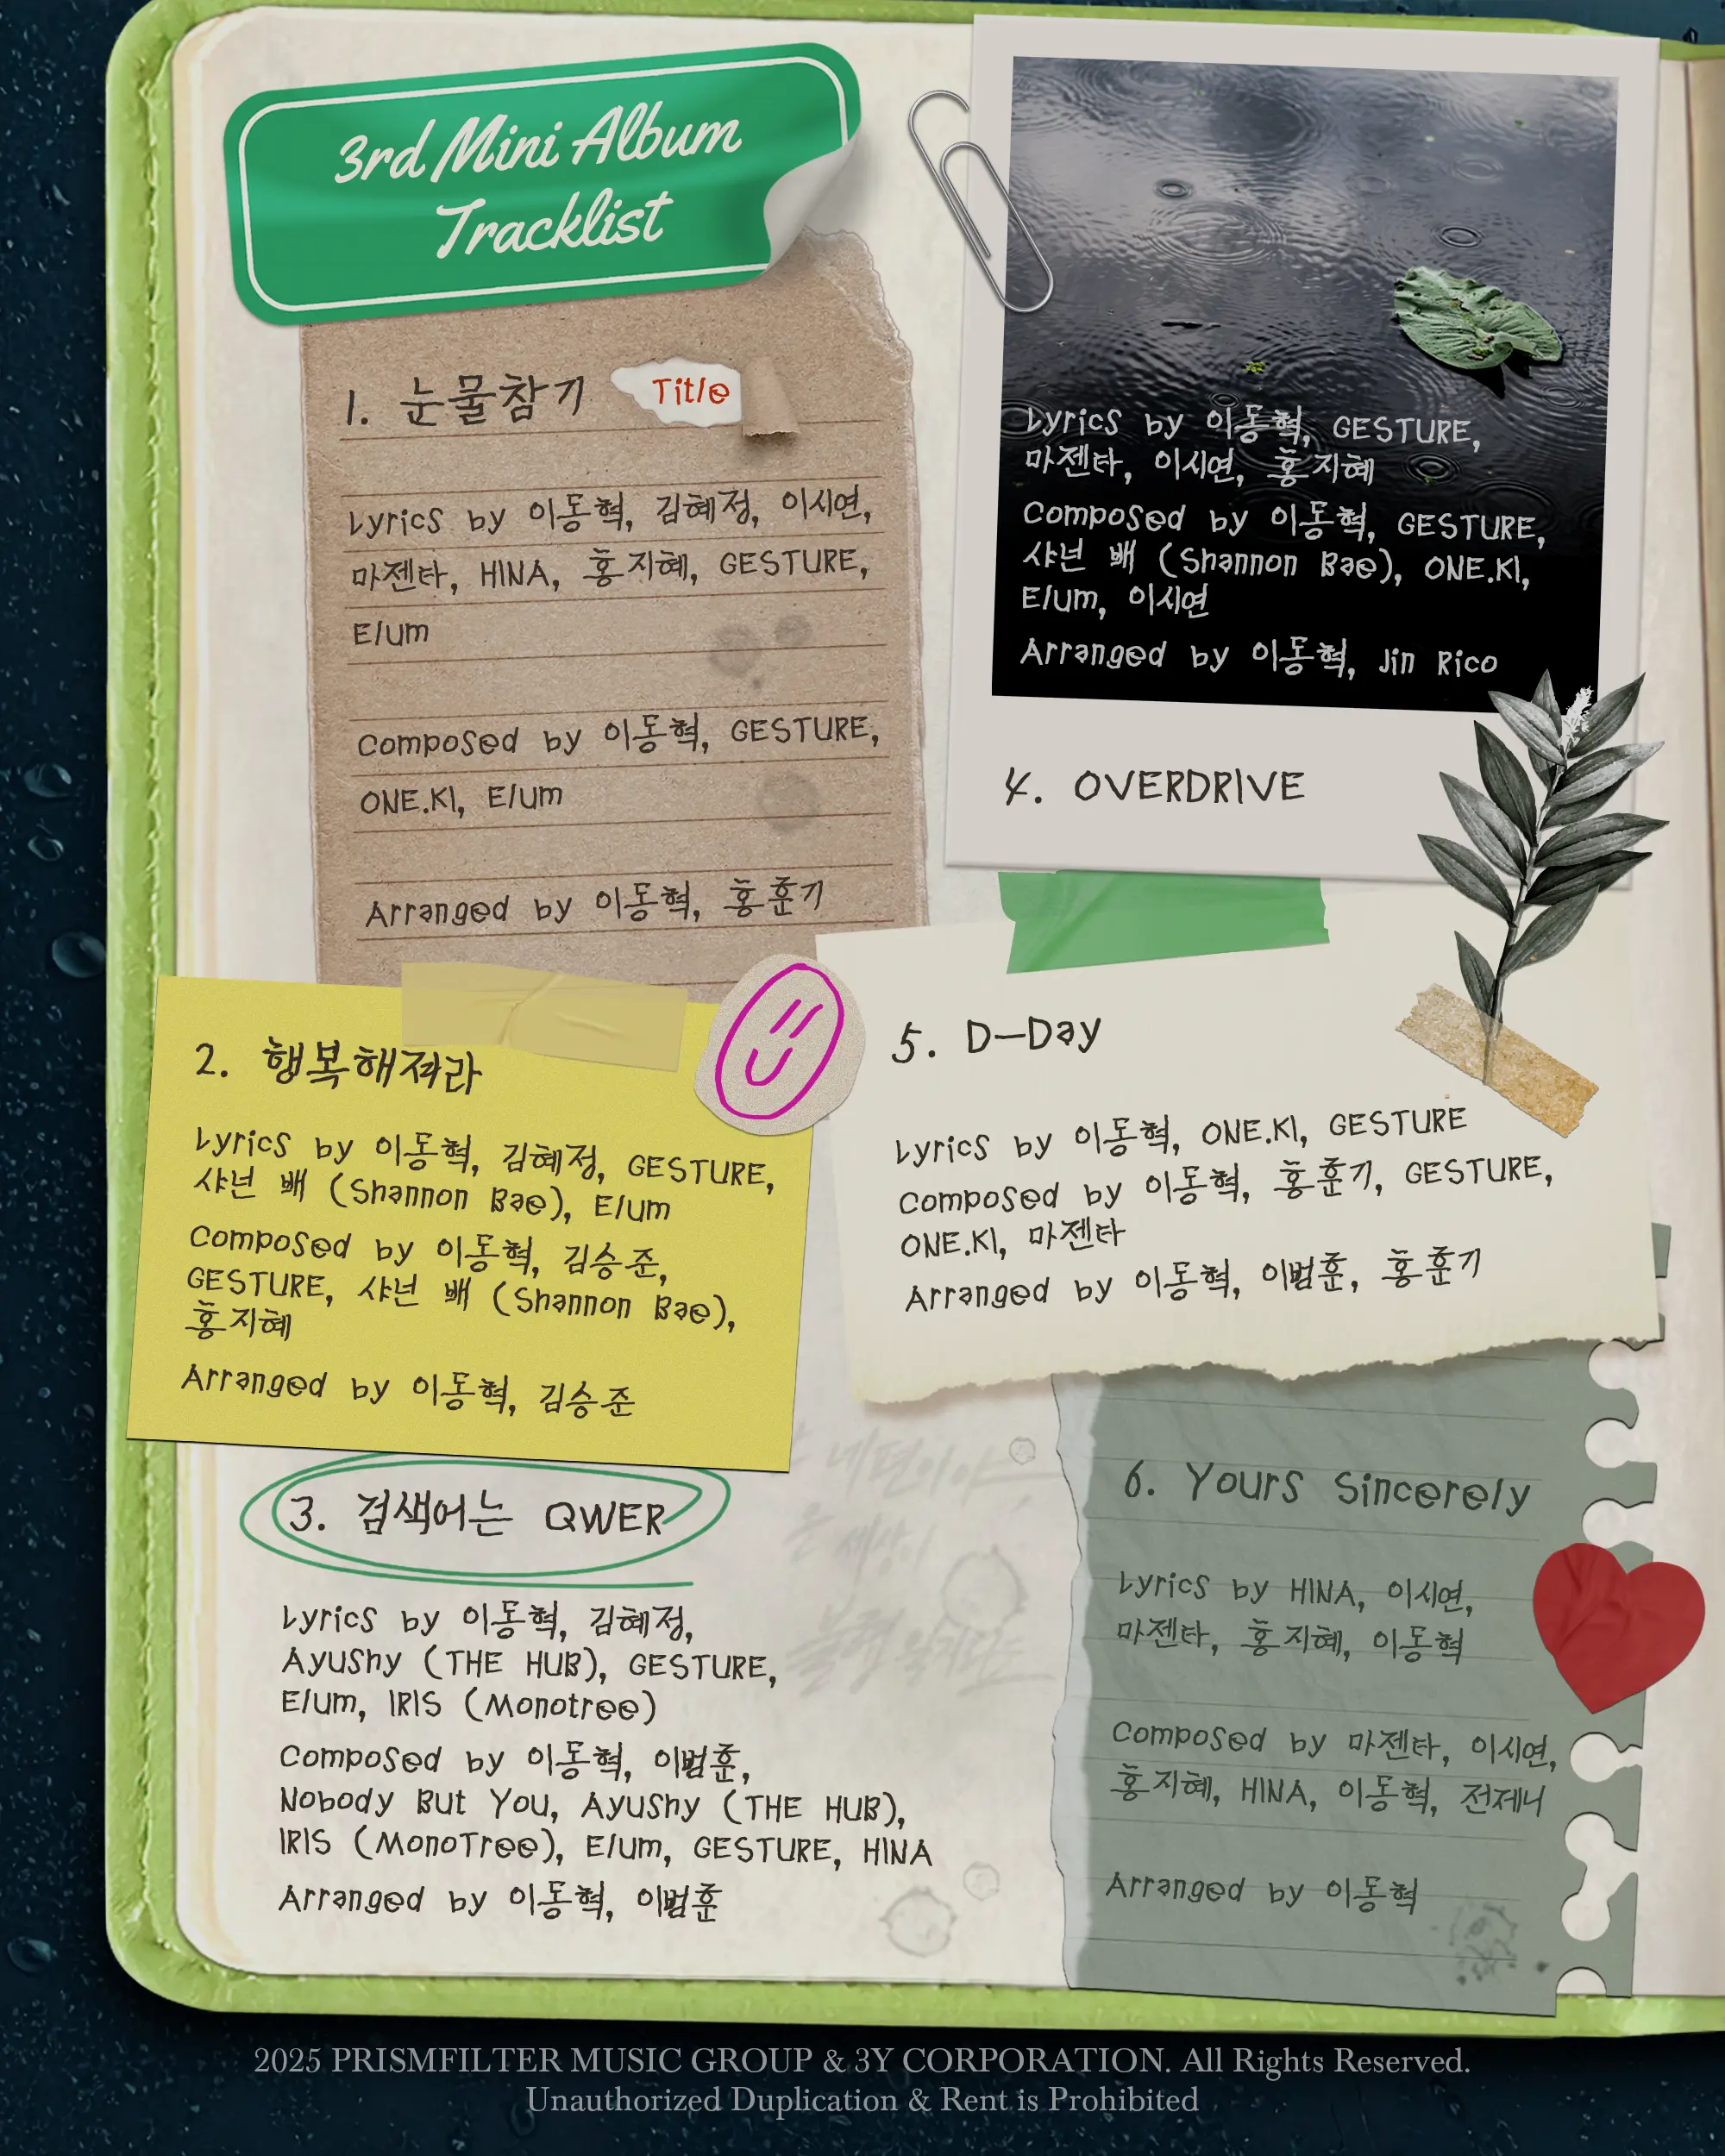 3rd Mini Album
Tracklist
1. 눈물참기
Title
Lyrics by 이동혁, 김혜정, 이시연,
마젠타, HINA, 홍지혜, GESTURE,
Elum
Composed by 이동혁, GESTURE,
ONE.KI, Elum
Arranged by 이동혁, 홍훈기
2. 행복해져라
Lyrics by 이동혁, 김혜정, GESTURE,
샤넌 배 (Shannon Bae), Elum
Composed by 이동혁, 김승준,
GESTURE, 샤넌 배 (Shannon Bae),
홍지혜
Arranged by 이동혁, 김승준
3. 검색어는 QWER
Lyrics by 이동혁, 김혜정,
Ayushy (THE HUB), GESTURE,
Elum, IRIS (Monotree)
Composed by 이동혁, 이범훈,
Nobody But You, Ayushy (THE HUB),
IRIS (MonoTree), Elum, GESTURE, HINA
Arranged by 이동혁, 이범훈
Lyrics by 이동혁, GESTURE,
마젠타, 이시연, 홍지혜
Composed by 이동혁, GESTURE,
샤넌 배 (Shannon Bae), ONE.KI,
Elum, 이시연
Arranged by 이동혁, Jin Rico
4. OVERDRIVE
5. D-Day
Lyrics by 이동혁, ONE.KI, GESTURE
Composed by 이동혁, 홍훈기, GESTURE,
ONE.KI, 마젠타
Arranged by 이동혁, 이범훈, 홍훈기
내편이야
세상이
않지만도
6. Yours Sincerely
Lyrics by HINA, 이시연,
마젠타, 홍지혜, 이동혁
Composed by 마젠타, 이시연,
홍지혜, HINA, 이동혁, 전제니
Arranged by 이동혁
2025 PRISMFILTER MUSIC GROUP & 3Y CORPORATION. All Rights Reserved.
Unauthorized Duplication & Rent is Prohibited